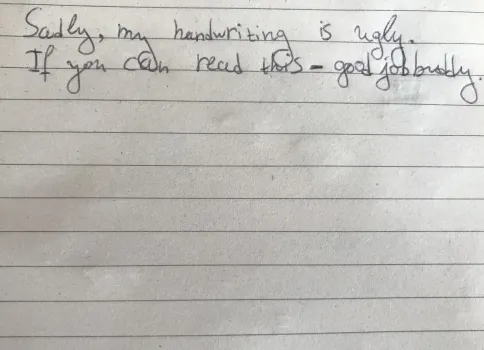 Sadly, my handwriting is ugly.
If you can read this - good job buddy.